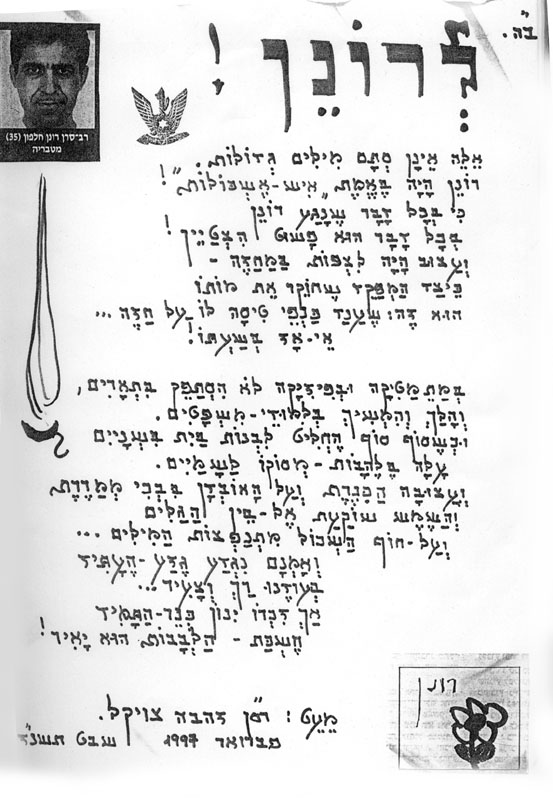 ב"ה.
לְרוֹנֵן !
רב־סרן רונן חלפון (35)
מטבריה
אֵלֶּה אֵינָן סְתָם מִילִים גְּדוֹלוֹת.
רוֹנֵן הָיָה בֶּאֱמֶת "אִישׁ-אֶשְׁכּוֹלוֹת"!
כִּי בְּכָל דָּבָר שֶׁנָּגַע רוֹנֵן
בְּכָל דָּבָר הוּא פָּשׁוּט הִצְטַיֵּין!
וְעָצוּב הָיָה לִצְפּוֹת בַּמַּחֲזֶה -
כֵּיצַד הַמְפַקֵּד שֶׁחוֹקֵר אֶת מוֹתוֹ
הוּא זֶה: שֶׁעָנַד כַּנְפֵי טִיסָה לוֹ עַל חָזֶה ...
אֵי-אָז בְּשַׁעְתּוֹ!
בְּמָתֵמָטִיקָה וּבְפִיזִיקָה לֹא הִסְתַּפֵּק בִּתְאָרִים,
וְהָלַךְ וְהִמְשִׁיךְ בְּלִמּוּדֵי-מִשְׁפָּטִים.
וּכְשֶׁסּוֹף סוֹף הֶחְלִיט לִבְנוֹת בַּיִת בִּשְׁנַיִים
עָלָה בְּלֶהָבוֹת - מְסוֹקוֹ לַשָּׁמַיִים.
וַעֲצוּבָה הַכִּנֶּרֶת וְעַל הָאוֹבְדָן בִּבְכִי מְמָרֶרֶת
וְהַשֶּׁמֶשׁ שׁוֹקַעַת אֶל-בֵּין הַגַּלִּים
וְעַל-חוֹף הַשְּׁכוֹל מִתְנַפְּצוֹת הַמִּילִים ...
וְאָמְנָם נִגְדַּע גֶּזַע-הֶעָתִיד
בְּעוֹדֶנּוּ רַךְ וְצָעִיר...
אַךְ זִכְרוֹ יִנּוֹן כְּנֵר-הַתָּמִיד
חֶשְׁכַת - הַלְּבָבוֹת הוּא יָאִיר!
מֵאֵת: זהבה צויקל.
פברואר 1997 שבט תשנ"ז
רונן